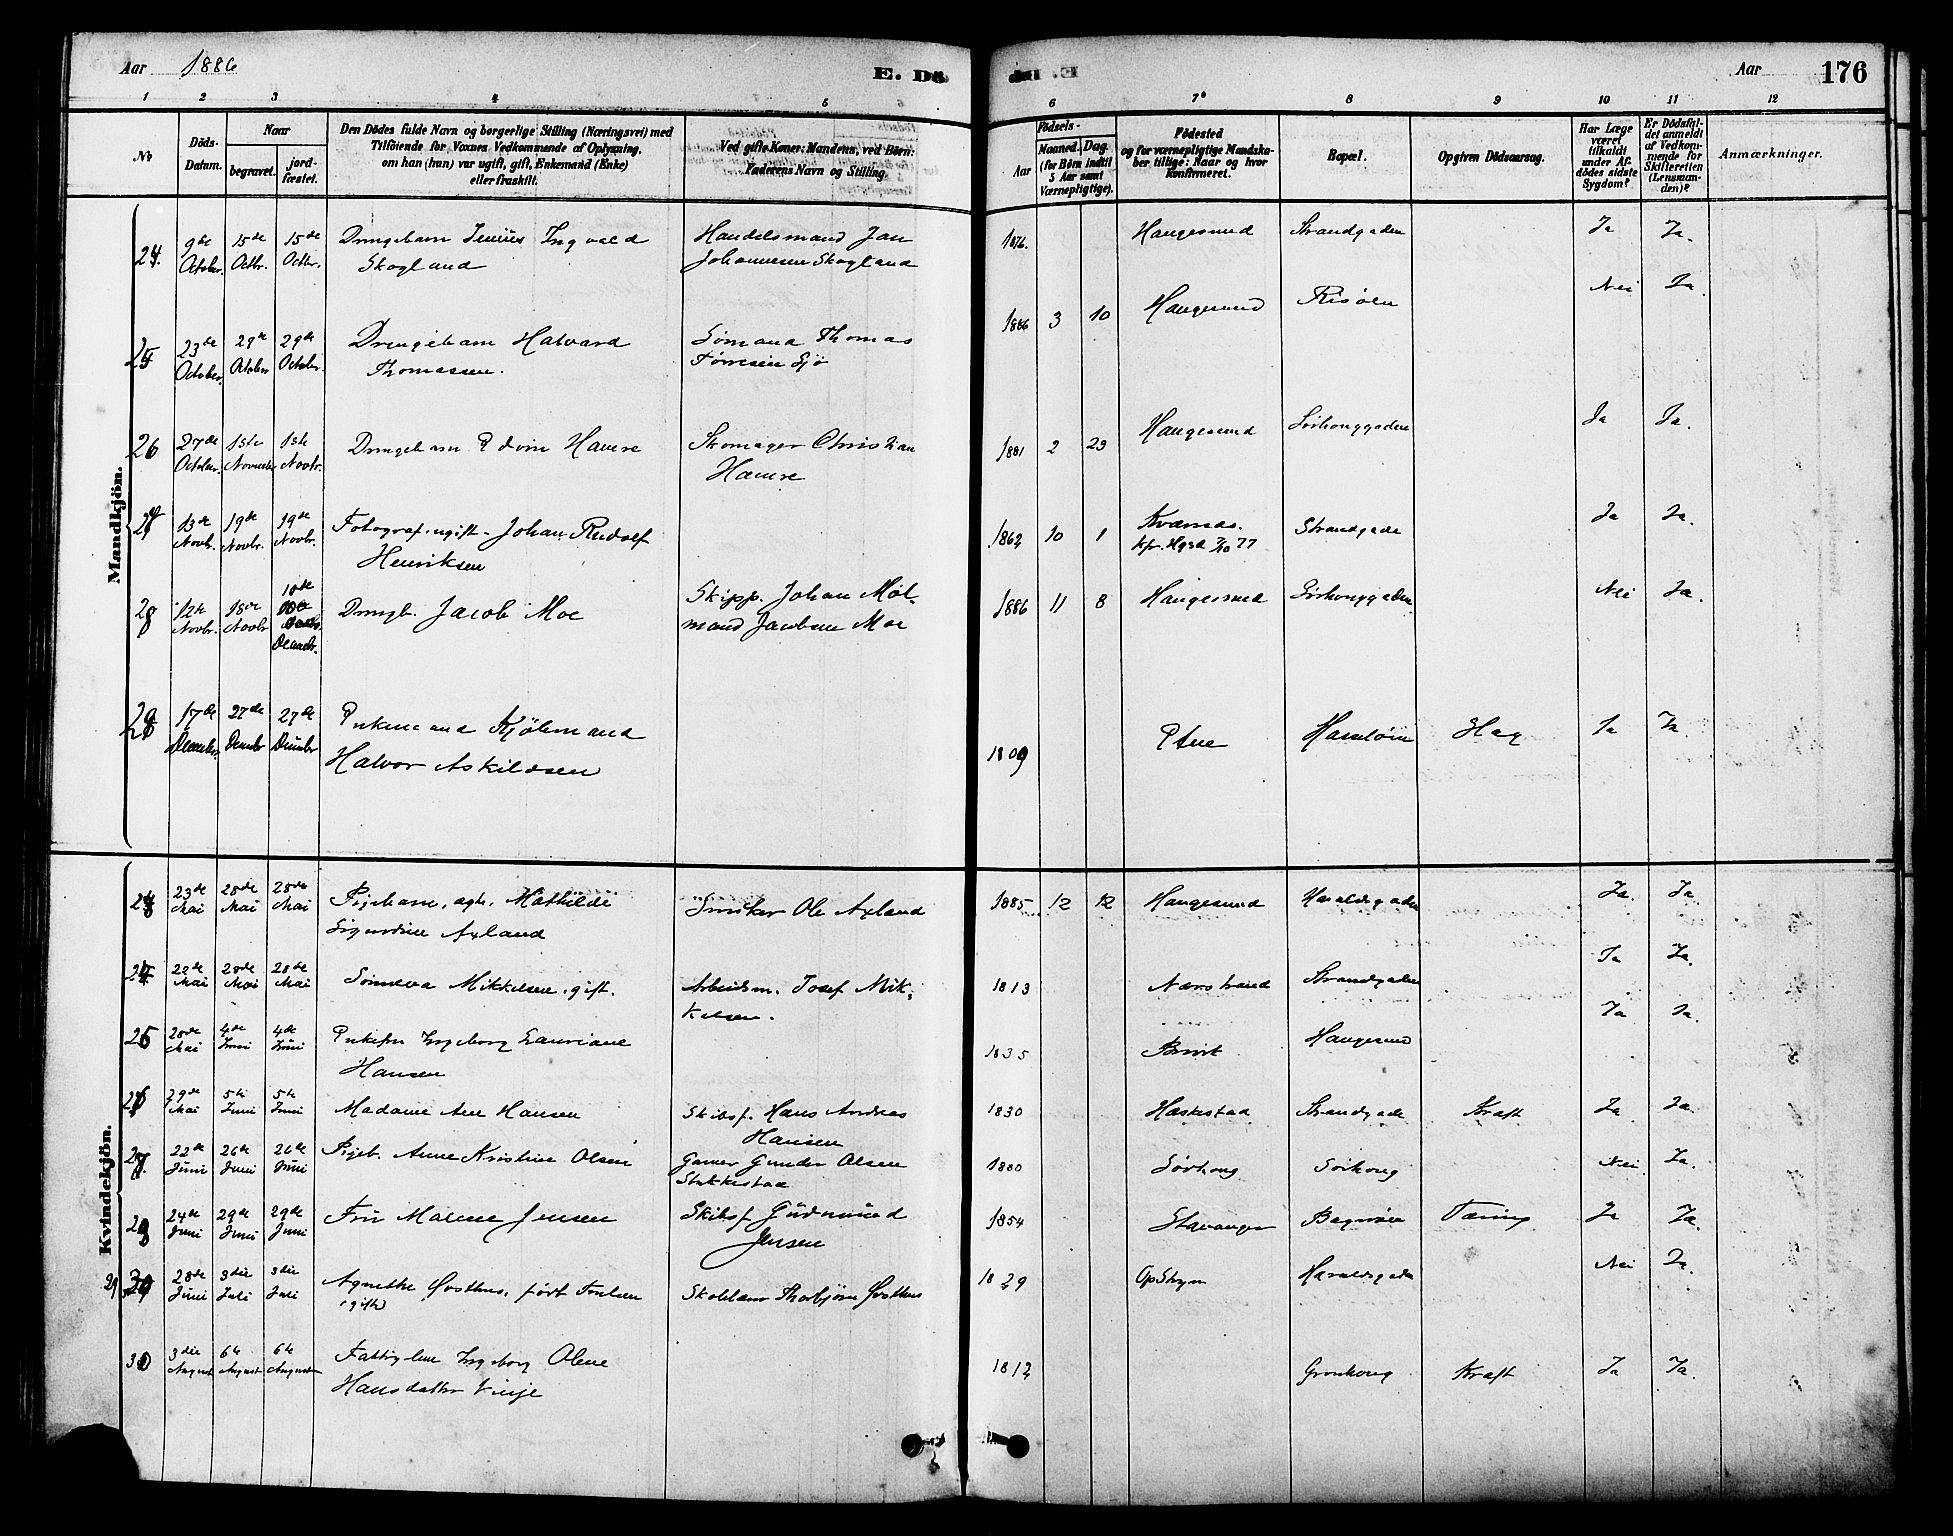 Aar 1886
E. Dö
Aar
176
1 2 3 4 5 6
6 7 8 9 10 11 12
No
Döds-Datum.
Naar
begravet.
jord-fæstet.
Den Dödes fulde Navn og borgerlige Stilling (Næringsvei) med
Tilföiende for Voxnes Vedkommende af Oplysning,
om han (hun) var ugift, gift, Enkemand (Enke)
eller fraskilt.
Ved gifte Koner: Mandens, ved Börn:
Faderens Navn og Stilling.
Födsels-
Aar
Maaned. Dag.
(for Börn indtil
5 Aar samt
Værnepligtige).
Födested
og for værnepligtige Mandska-
ber tillige: Naar og hvor
Konfirmeret.
Bopæl.
Opgiven Dödsaarsag.
Har Læge
været
tilkaldt
under Af-
dödes sidste
Sygdom?
Er Dödsfal-
det anmeldt
af Vedkom-
mende for
Skifteretten
(Lensman-
den)?
Anmærkninger.
Mandkjön.
24 9de October. 15de Octbr. 15de Octbr. Drengebarn Ingvald Skogland Handelsmand Jan Johannesen Skogland 1876. Haugesund Strandgaden Ja Ja.
25 23de October. 29de October 29de October. Drengebarn Halvard Thomassen. Sømand Thomas Tørresen Sjø 1886 3 10 Haugesund Risøen Nei Ja.
26 27de October. 1ste November 1ste Novbr. Drengebarn Edvin Hamre Skomager Christian Hamre 1881 2 23 Haugesund Sørhouggaden Ja Ja.
27 13de Novbr. 19de Novbr. 19de Novbr. Fotograf, ugift - Johan Rudolf Henriksen 1862 10 1 Kvarnæs. Strandgade Ja Ja.
28 12te Novbr. 18de Novbr 10de Decembr. Drengb. Jacob Moe Skipp. Johan Mølmand Jacobsen Moe 1886 11 8 Haugesund Sørhouggaden Nei Ja.
29 17de December. 27de Decmbr 27de Decmbr Enkemand Kjøbmand Halvor Askildsen 1809 Etne Hasseløen Ja Ja
Kvindekjön.
23 23de Mai 28de Mai 28de Mai Pigebarn, ægte, Mathilde Sigurdine Axland Snekker Ole Axland 1885 12 12 Haugesund Haraldsgaden Ja. Ja.
24 22de Mai 28de Mai 28de Mai Sønneva Mikkelsen, gift. Arbeidsm. Josef Mikkelsen. 1813 Nærstrand Strandgaden Ja Ja.
25 28de Mai 4de Juni 4de Juni Enkefru Ingeborg Lauriane Hansen 1835 Haugesund Ja Ja.
26 29de Mai 5te Juni 5te Juni Madame Ane Hansen Skibsf. Hans Andreas Hansen 1830 Haskestad Strandgade Kræft Ja Ja.
27 22de Juni 26de Juni 26de Juni Pigeb. Anne Kristine Olsen Garver Gunder Olsen Stakkestad 1880 Sørhoug Sørhoug Nei Ja.
28 24de Juni 29de Juni 29de Juni Fru Malene Jensen Skibsf Gudmund Jensen 1854 Stavanger Tæring Ja Ja.
29 28de Juni 3die Juli 3die Juli Agnethe Østhus, født (gift) Skolelærer Thorbjørn Østhus 1829 Opstryn Haraldsgaden Nei Ja.
30 3die August 6te August 6te August Fattiglem Ingeborg Olene Hansdatter Vinje 1812 Grønhoug Kræft Ja Ja.